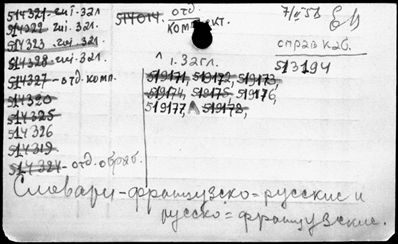 514321-чит. зал
514322 чит. зал.
514323 чит. зал.
514328 чит. зал.
514327-отд. комп.
514320
514325
514326
514319
514324-отд. обраб.
514014. отд.
КОМПЛЕКТ.
справ каб.
513194
1. з2гл.
519171, 519172, 519173,
519174, 519175, 519176,
519177, 519178,
Словари-французско-русские и
русско=французские.